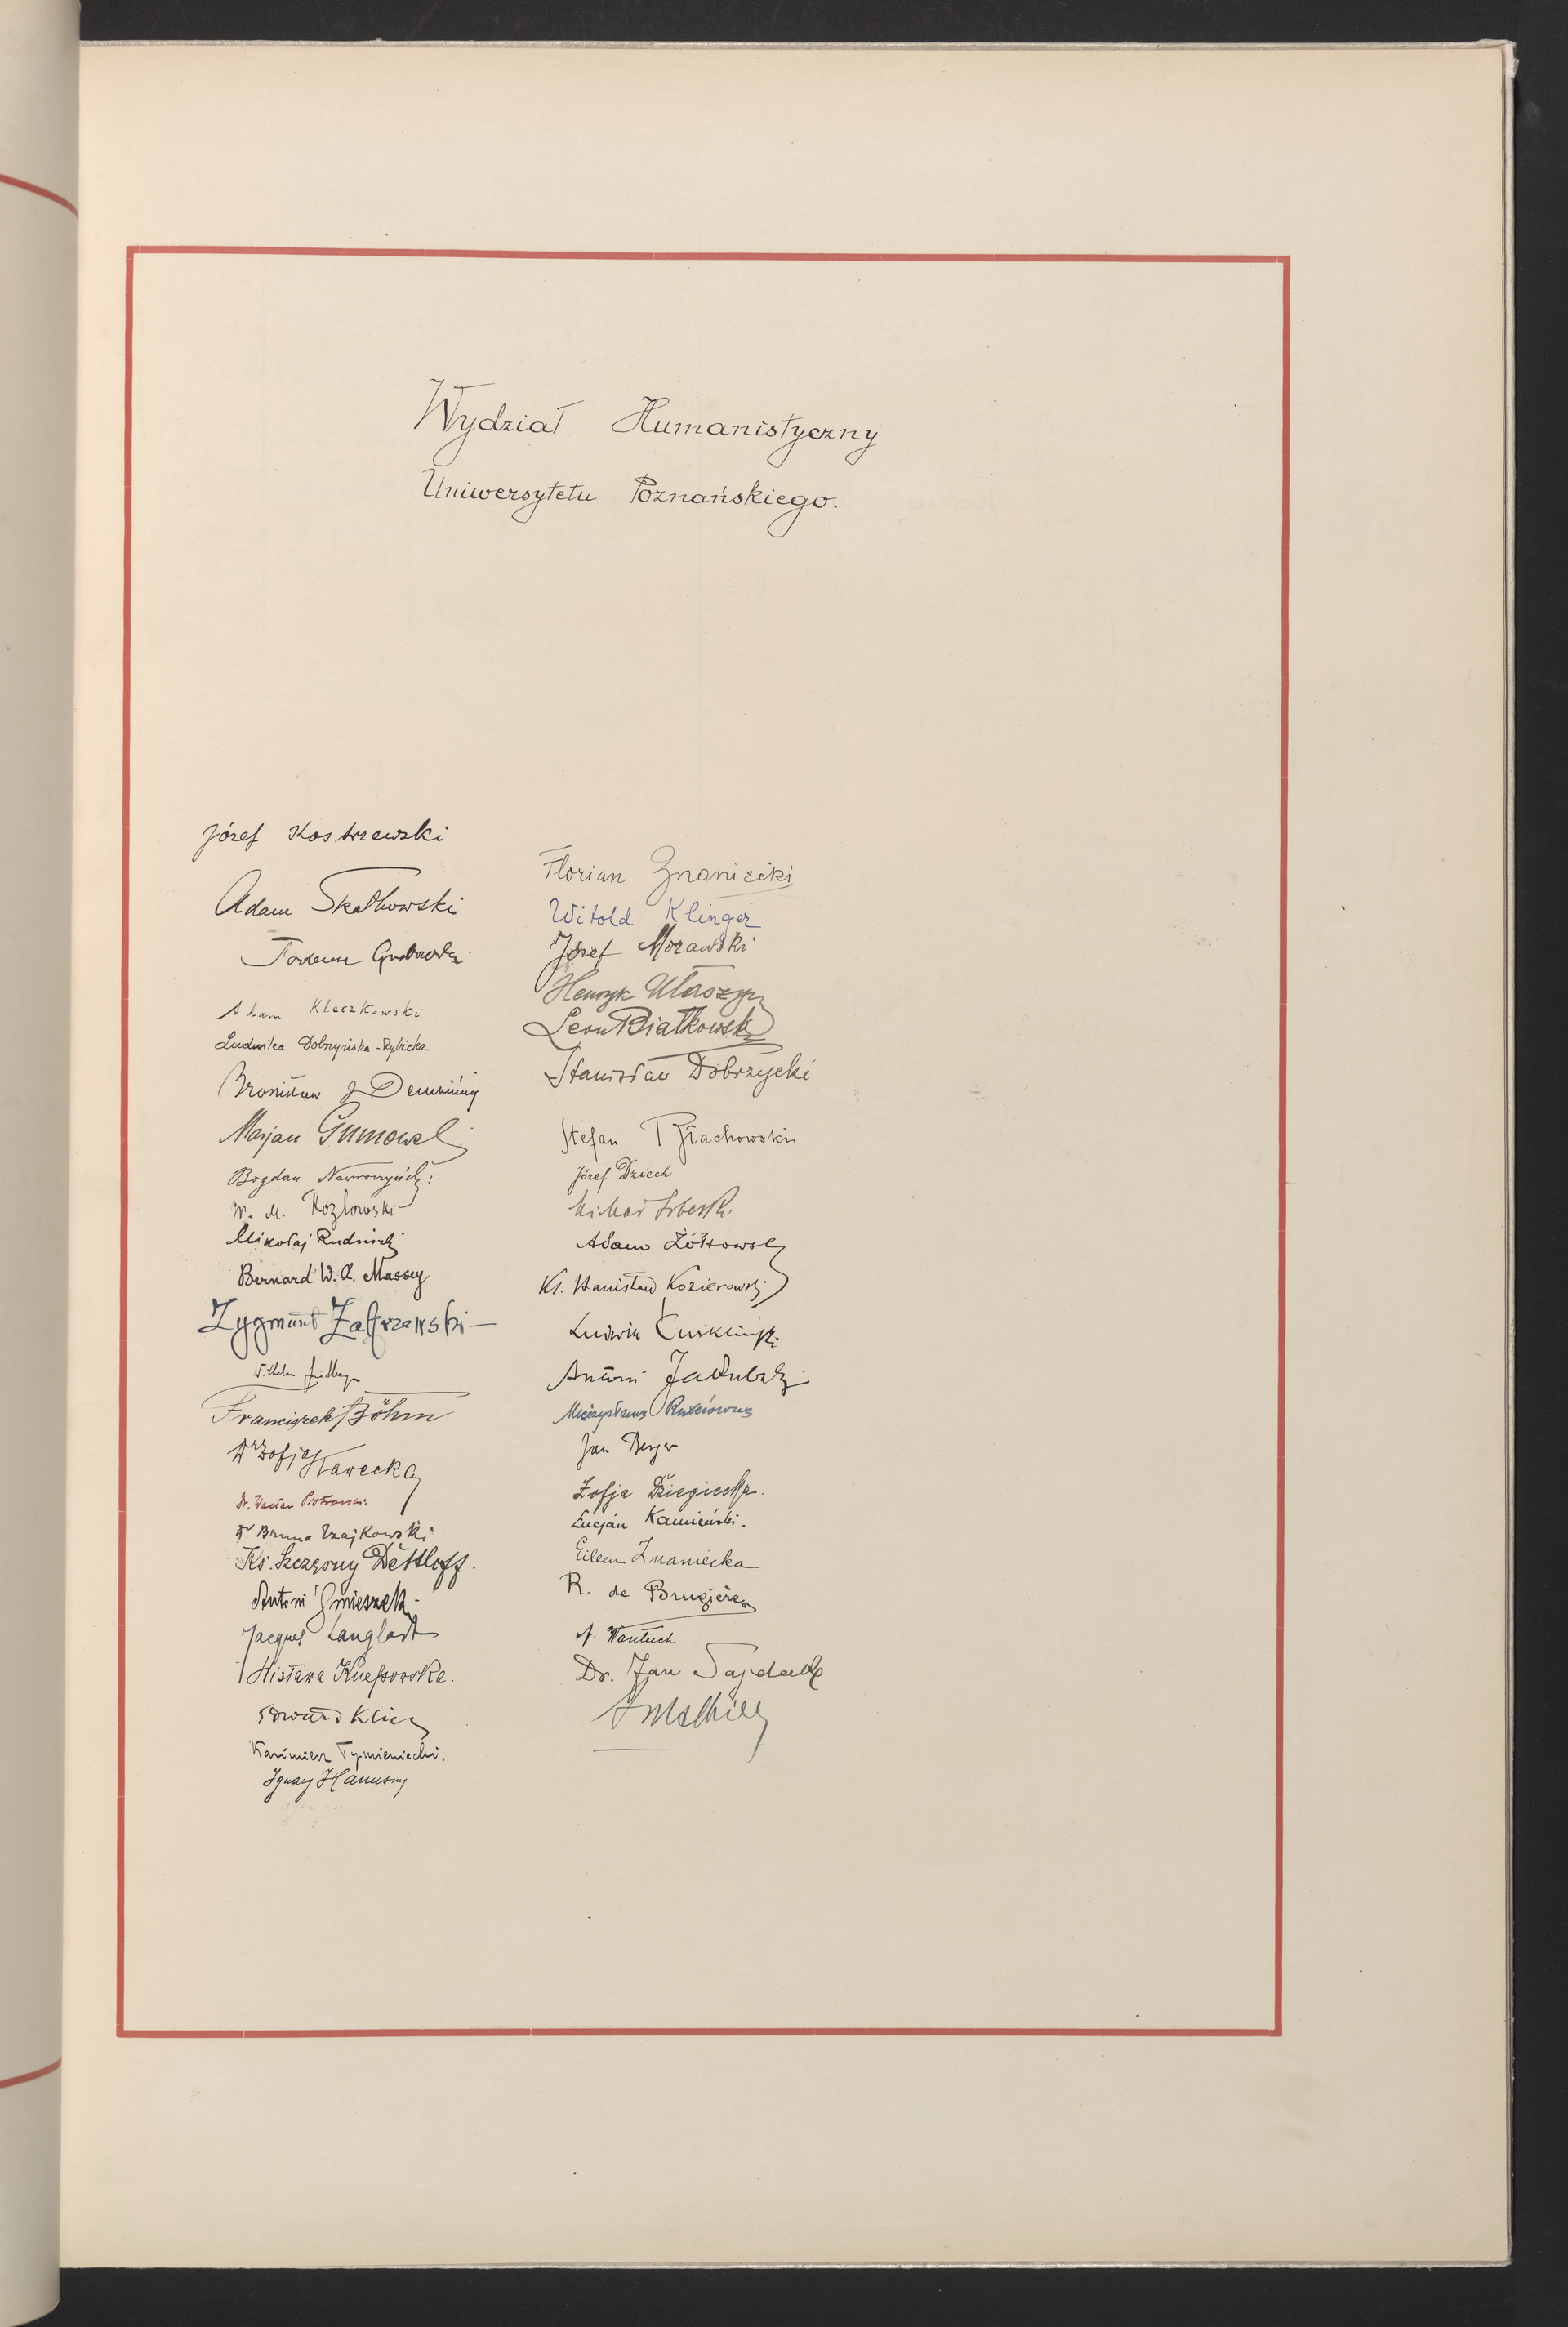 Wydział Humanistyczny
Uniwersytetu Poznańskiego.
Józef Kostrzewski
Adam Skałkowski
Tadeusz Grabowski
Adam Kleczkowski
Ludwika Dobrzyńska-Rybicka
Bronisław Dembiński
Marjan Gumowski
Bogdan Nawroczyński
W. M. Kozłowski
Mikołaj Rudnicki
Bernard W. A. Massey
Zygmunt Zakrzewski
Wilhelm Friedberg
Franciszek Böhm
Dr Zofja Kawecka
Dr. Wacław Piotrowski
Dr Bruno Czajkowski
Ks. Szczęsny Dettloff.
Antoni Śmieszek
Jacques Langlade
Wisława Knapowska.
Edward Klich
Kazimierz Tymieniecki.
Ignacy Hanusz
Florian Znaniecki
Witold Klinger
Józef Morawski
Henryk Ułaszyn
Leon Białkowski
Stanisław Dobrzycki
Stefan Błachowski
Józef Dziech
Michał Sobeski
Adam Żółtowski
Ks. Stanisław Kozierowski
Ludwik Ćwikliński
Antoni Jakubski
Mieczysława Ruxerówna
Jan Berger
Zofja Dziegiecka.
Łucjan Kamieński.
Eileen Znaniecka
R. de Brugière
A. Wantuch
Dr. Jan Sajdak